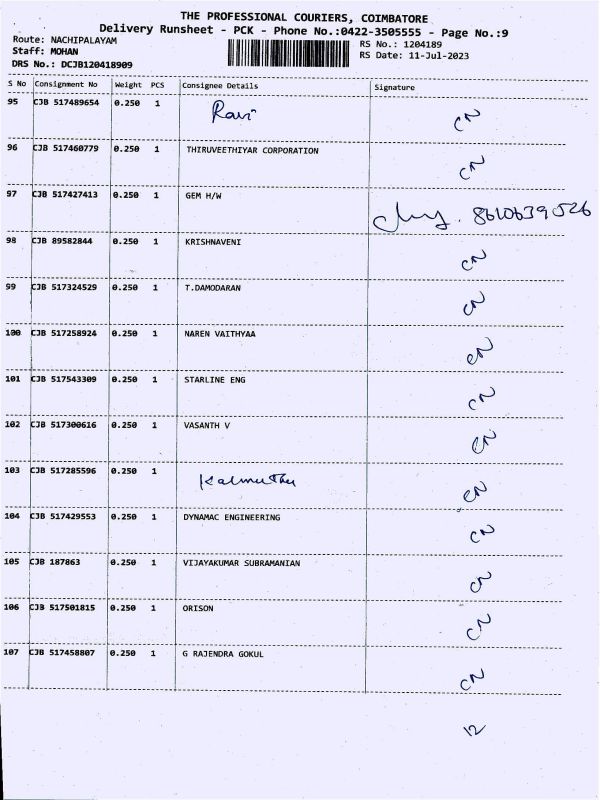 THE PROFESSIONAL COURIERS, COIMBATORE
Delivery Runsheet - PCK - Phone No.:0422-3505555 - Page No.:9
Route: NACHIPALAYAM
Staff: MOHAN
DRS No.: DCJB120418909
RS No.: 1204189
RS Date: 11-Jul-2023
S No Consignment No Weight PCS Consignee Details Signature
95 CJB 517489654 0.250 1 Ravi CN
96 CJB 517460779 0.250 1 THIRUVEETHIYAR CORPORATION CN
97 CJB 517427413 0.250 1 GEM H/W 8610639526
98 CJB 89582844 0.250 1 KRISHNAVENI CN
99 CJB 517324529 0.250 1 T.DAMODARAN CN
100 CJB 517258924 0.250 1 NAREN VAITHYAA CN
101 CJB 517543309 0.250 1 STARLINE ENG CN
102 CJB 517300616 0.250 1 VASANTH V CN
103 CJB 517285596 0.250 1 Kalmuthu CN
104 CJB 517429553 0.250 1 DYNAMAC ENGINEERING CN
105 CJB 187863 0.250 1 VIJAYAKUMAR SUBRAMANIAN CN
106 CJB 517501815 0.250 1 ORISON CN
107 CJB 517458807 0.250 1 G RAJENDRA GOKUL CN
12